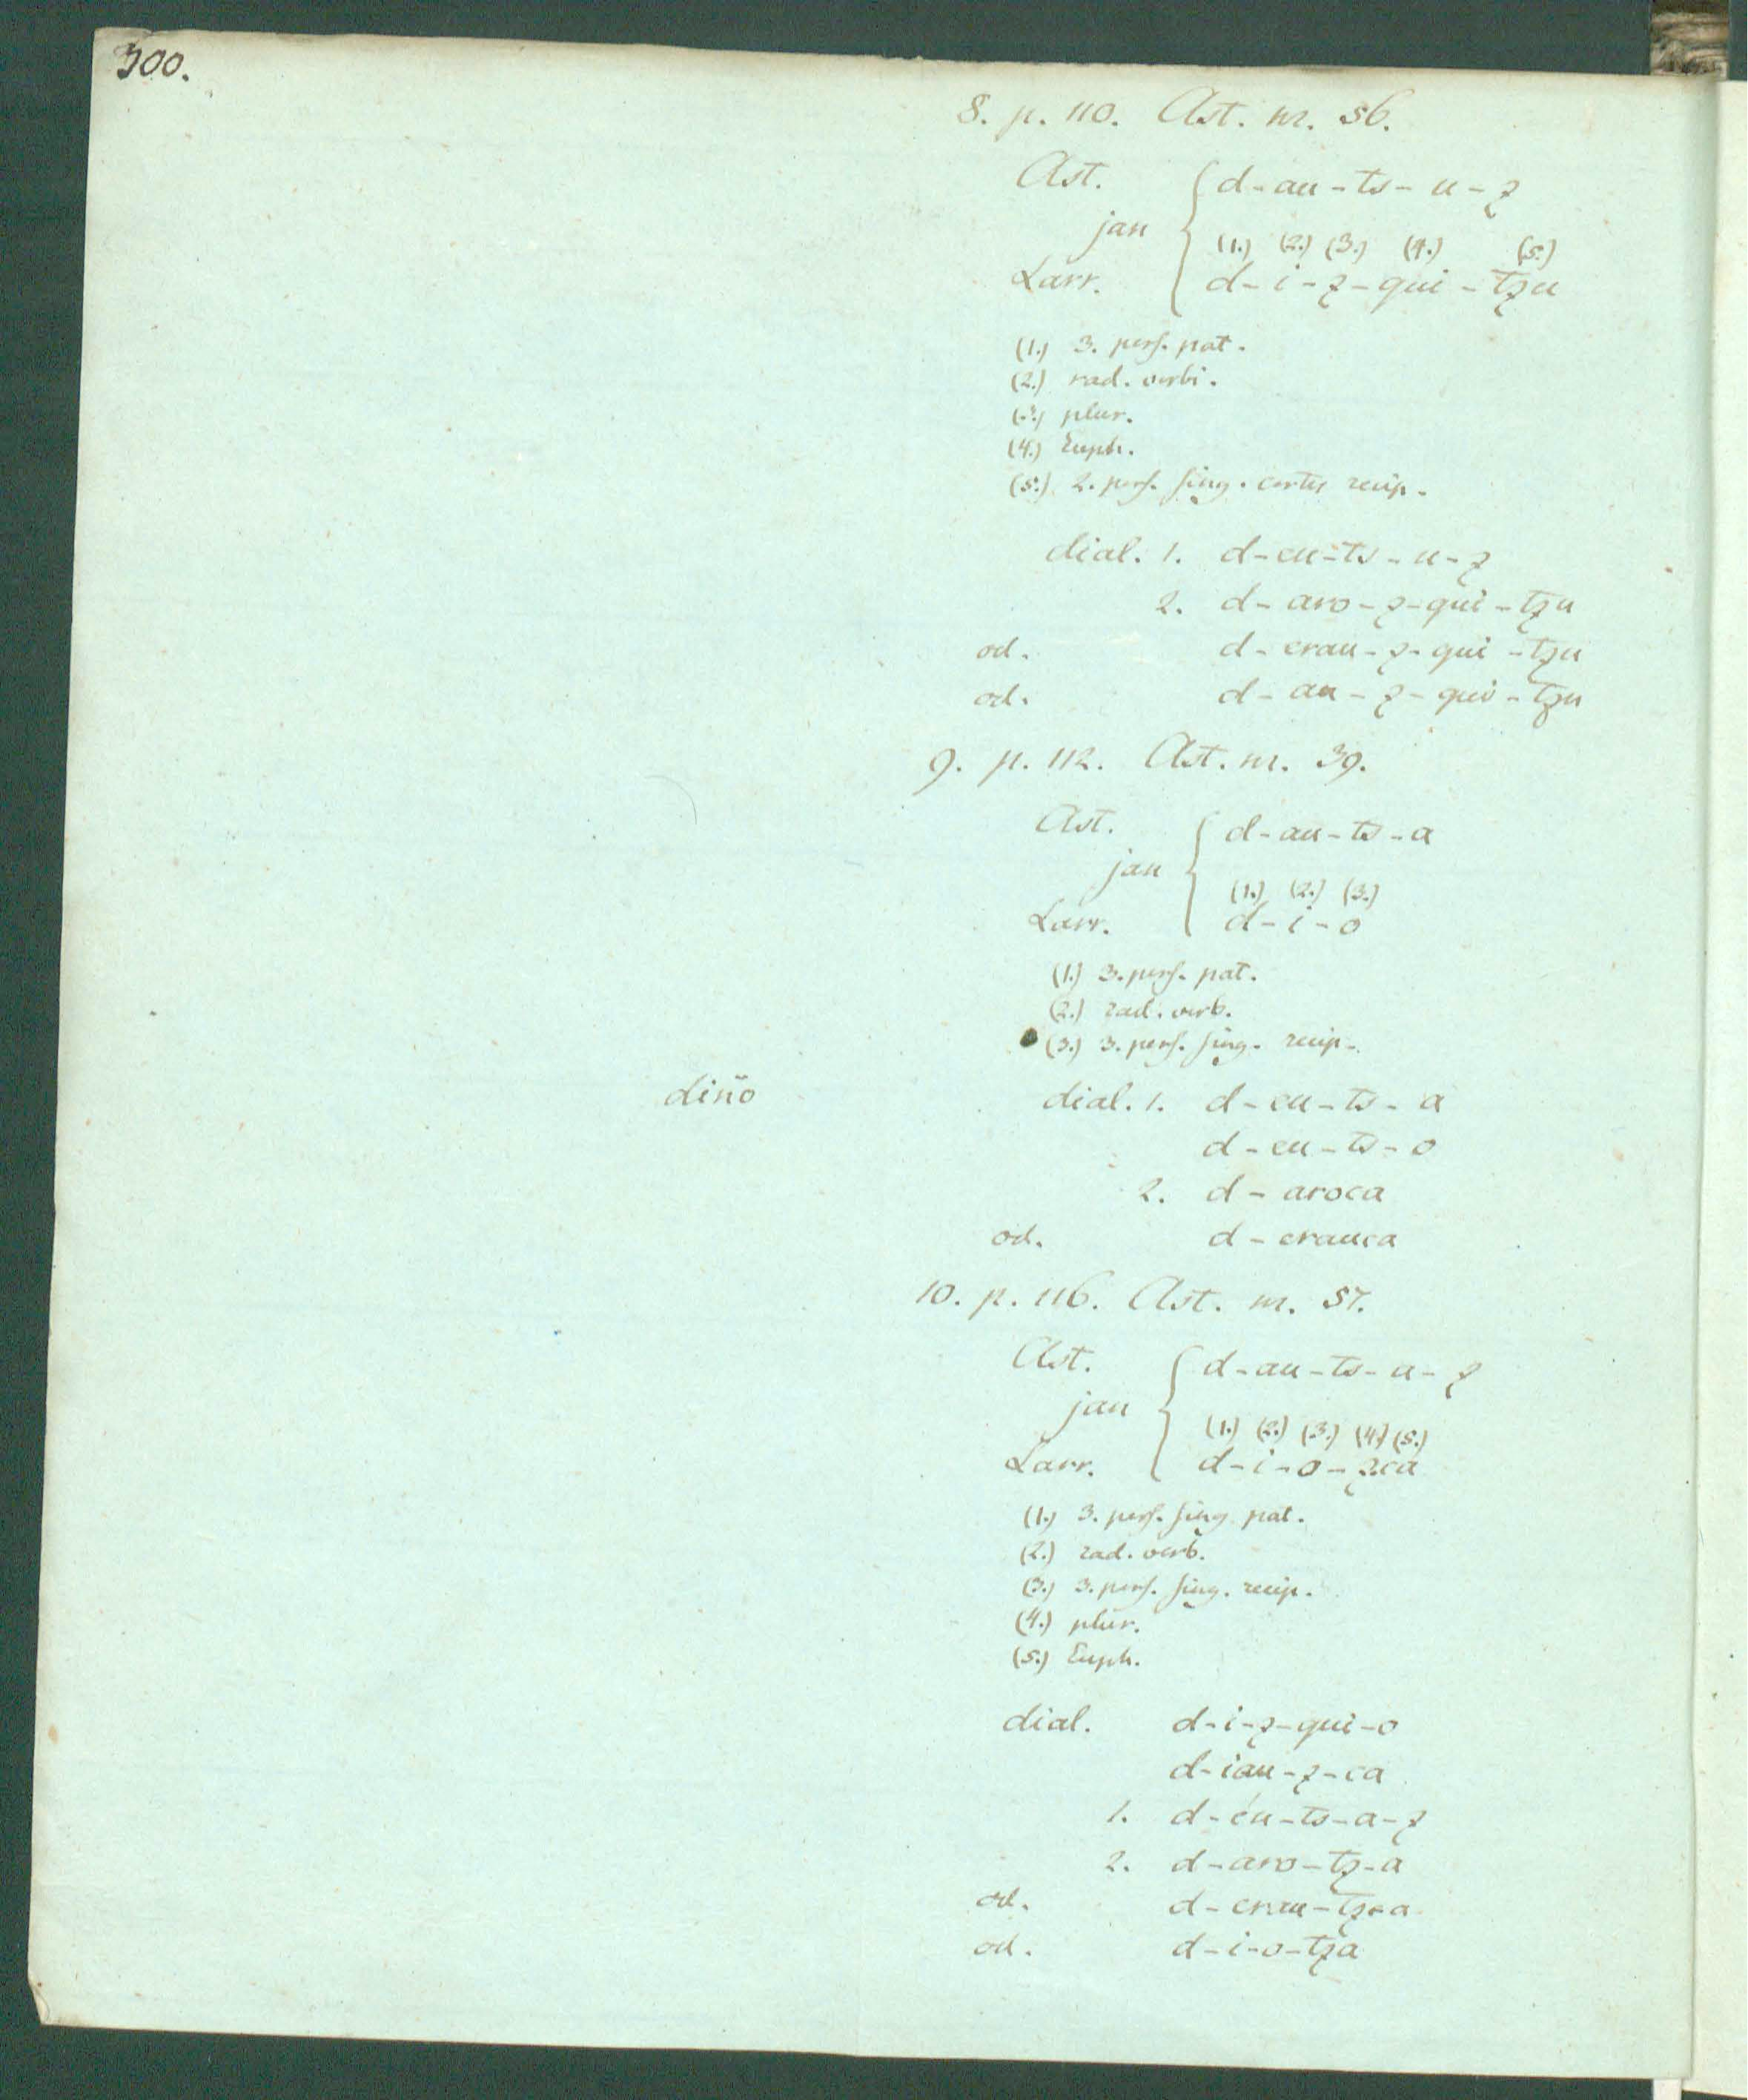 300.
8. p. 110. Ast. nr. 56.
Ast. d-au-ts-u-z
jan
(1.) (2.) (3.) (4.) (5.)
Larr. d-i-z-qui-tzu
(1.) 3. pers. pat.
(2.) rad. verbi.
(3.) plur.
(4.) Euph.
(5.) 2. pers. sing. recip.
dial. 1. d-eu-ts-u-z
2. d-aro-z-qui-tzu
od. d-erau-z-qui-tzu
od. d-au-z-qui-tzu
9. p. 112. Ast. nr. 39.
Ast. d-au-ts-a
jan
(1.) (2.) (3.)
Larr. d-i-o
(1.) 3. pers. pat.
(2.) rad. verb.
(3.) 3. pers. sing. recip.
diño
dial. 1. d-eu-ts-a
d-eu-ts-o
2. d-aroca
od. d-erauca
10. p. 116. Ast. nr. 57.
Ast. d-au-ts-a-z
jan
(1.) (2.) (3.) (4.) (5.)
Larr. d-i-o-zca
(1.) 3. pers. sing. pat.
(2.) rad. verb.
(3.) 3. pers. sing. recip.
(4.) plur.
(5.) Euph.
dial. d-i-z-qui-o
d-iau-z-ca
1. d-eu-ts-a-z
2. d-aro-tz-a
od. d-erau-tz-a
od. d-i-o-tza